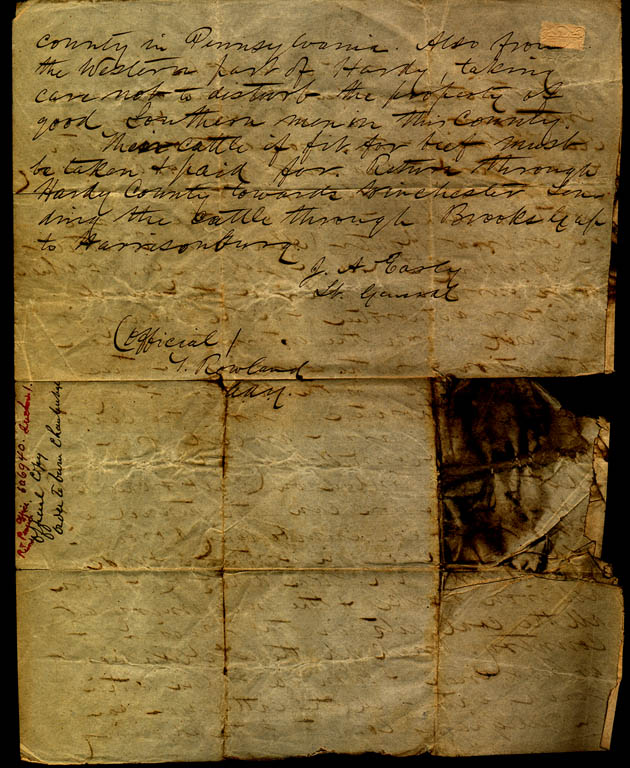 county in Pennsylvania. Also from
the Western part of Hardy, taking
care not to disturb the property of
good Southern men in this County.
These cattle if fit for beef must
be taken & paid for. Return through
Hardy County towards Winchester sen-
ding the cattle through Brocks Gap
to Harrisonburg
J. A. Early
Lt. General
(Official)
T. Rowland
AAG.
Official Copy
order to burn